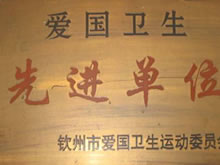 爱国卫生
先进单位
钦州市爱国卫生运动委员会